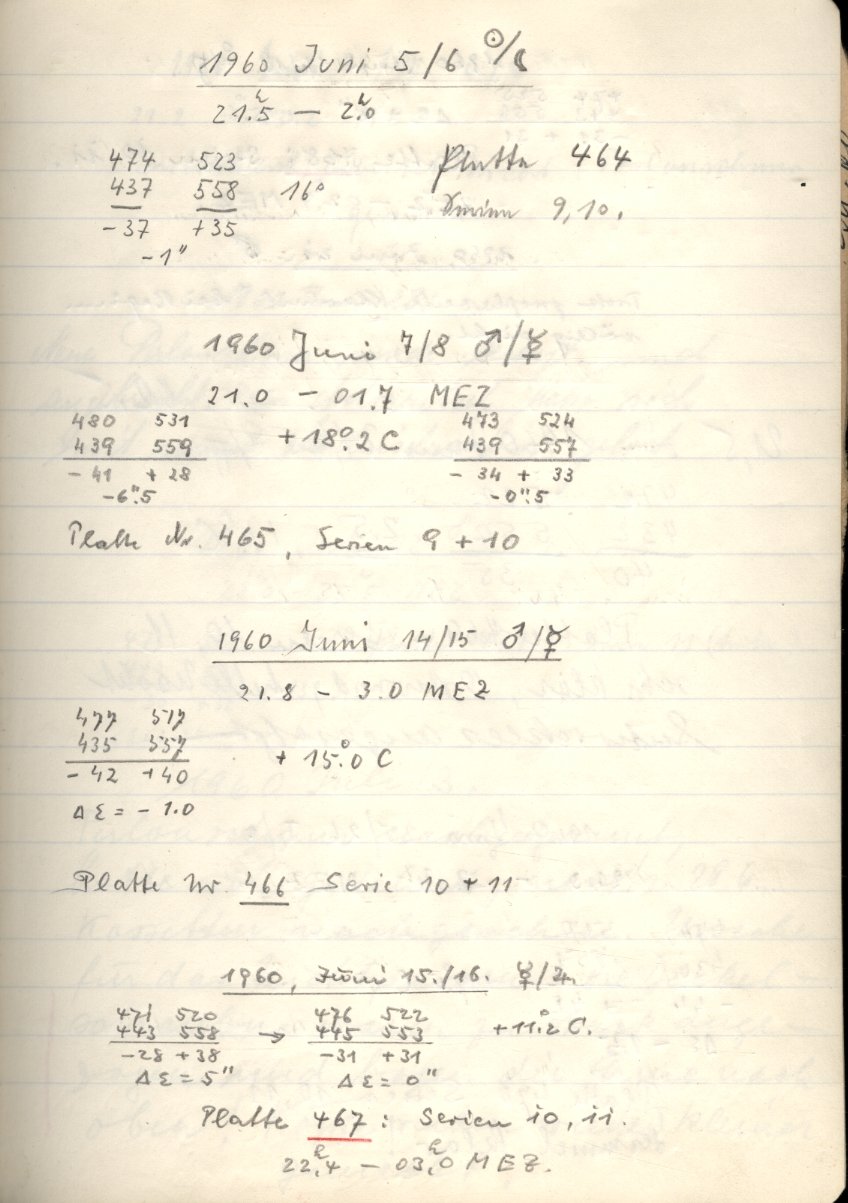 1960 Juni 5/6 ☉/☾
21.5h — 2.0h
474 523 Platte 464
437 558 16° Serien 9, 10.
-37 +35
-1"
1960 Juni 7/8 ♂/☿
21.0 — 01.7 MEZ
480 531 473 524
439 559 +18°.2 C 439 557
-41 +28 -34 + 33
-6".5 -0".5
Platte Nr. 465, Serien 9 + 10
1960 Juni 14/15 ♂/☿
21.8 — 3.0 MEZ
477 517
435 557 + 15°.0 C
-42 +40
Δε = -1.0
Platte Nr. 466 Serie 10 + 11
1960, Juni 15./16. ☿/♃.
471 520 476 522
443 558 → 445 553 +11°.2 C.
-28 +38 -31 +31
Δε = 5" Δε = 0"
Platte 467: Serien 10, 11.
22h.4 — 03h.0 MEZ.